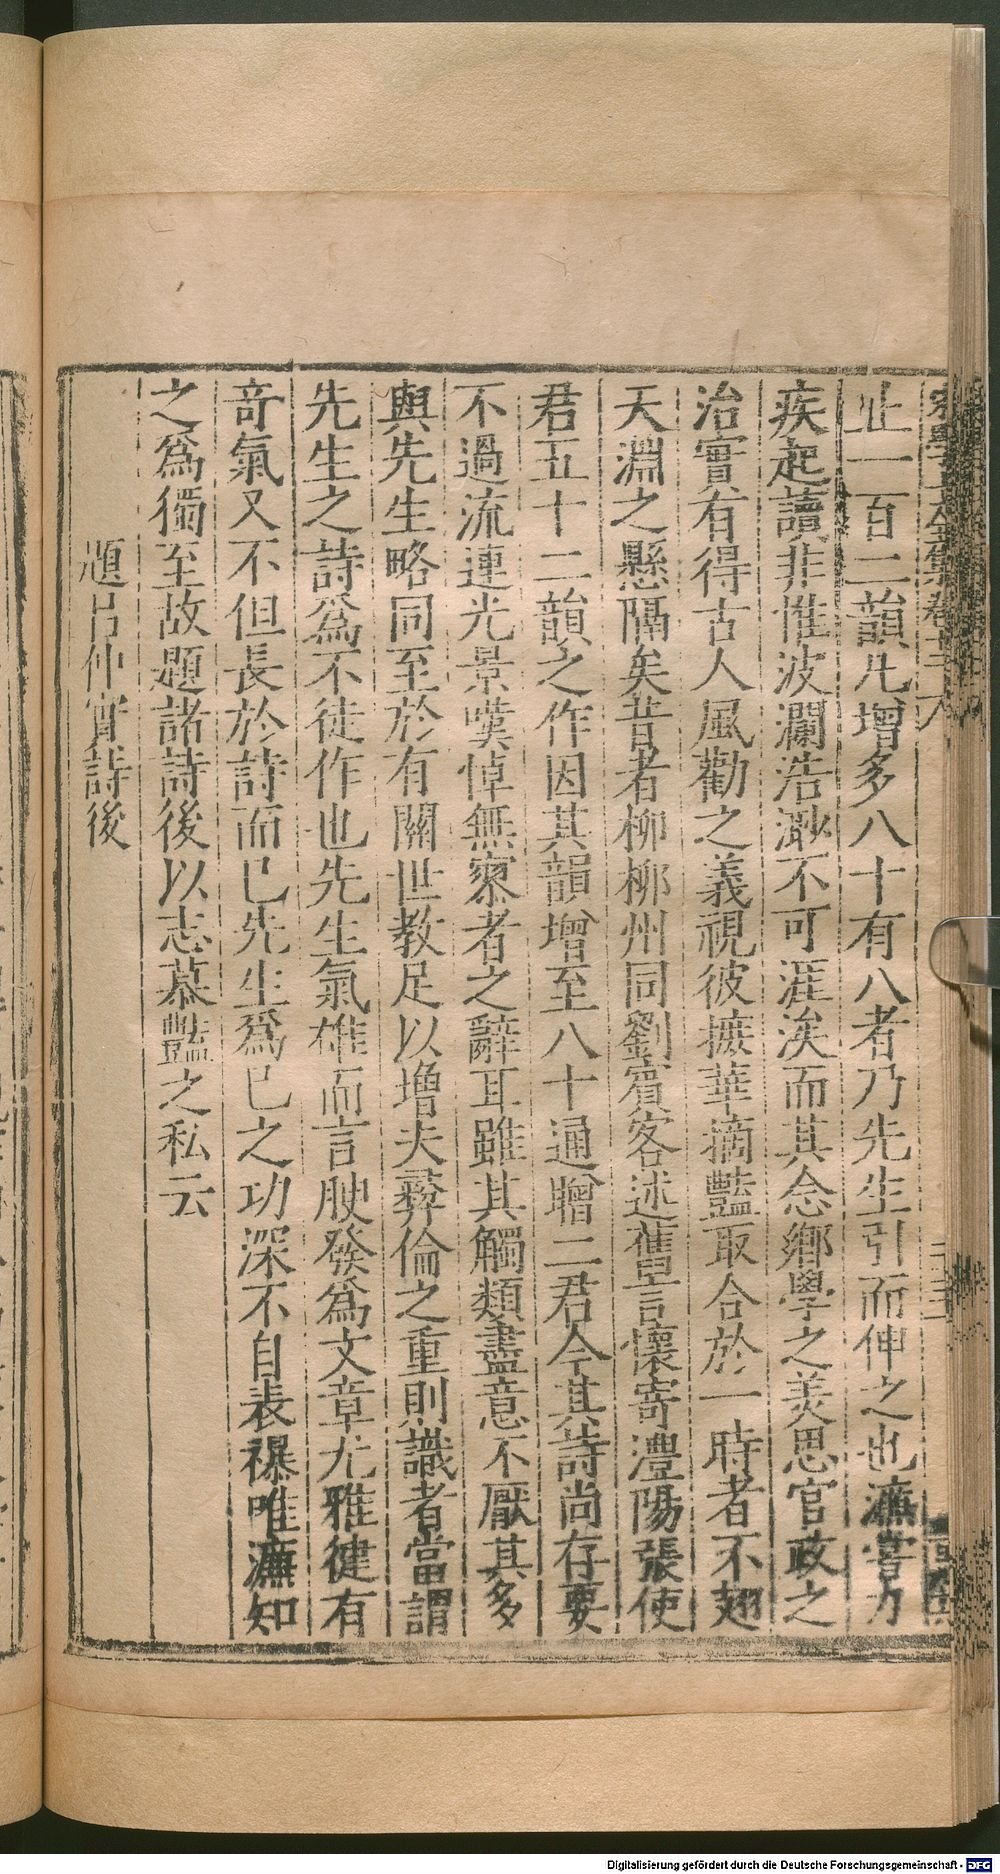 止一百二韻凡增多八十有八者乃先生引而伸之也濂嘗力
疾起讀非惟波瀾浩渺不可涯涘而其念鄉學之羙思官政之
治實有得古人風勸之義視彼摭華摘豔取合於一時者不翅
天淵之懸隔矣昔者柳柳州同劉賓客述舊言懷寄澧陽張使
君五十二韻之作因其韻增至八十通贈二君今其詩尚存要
不過流連光景嘆悼無憀者之辭耳雖其觸類盡意不厭其多
與先生略同至於有關世教足以增夫彞倫之重則識者當謂
先生之詩爲不徒作也先生氣雄而言腴發爲文章尤雅健有
奇氣又不但長於詩而已先生爲已之功深不自表襮唯濂知
之爲獨至故題諸詩後以志慕豔之私云
題呂仲實詩後
Digitalisierung gefördert durch die Deutsche Forschungsgemeinschaft - DFG